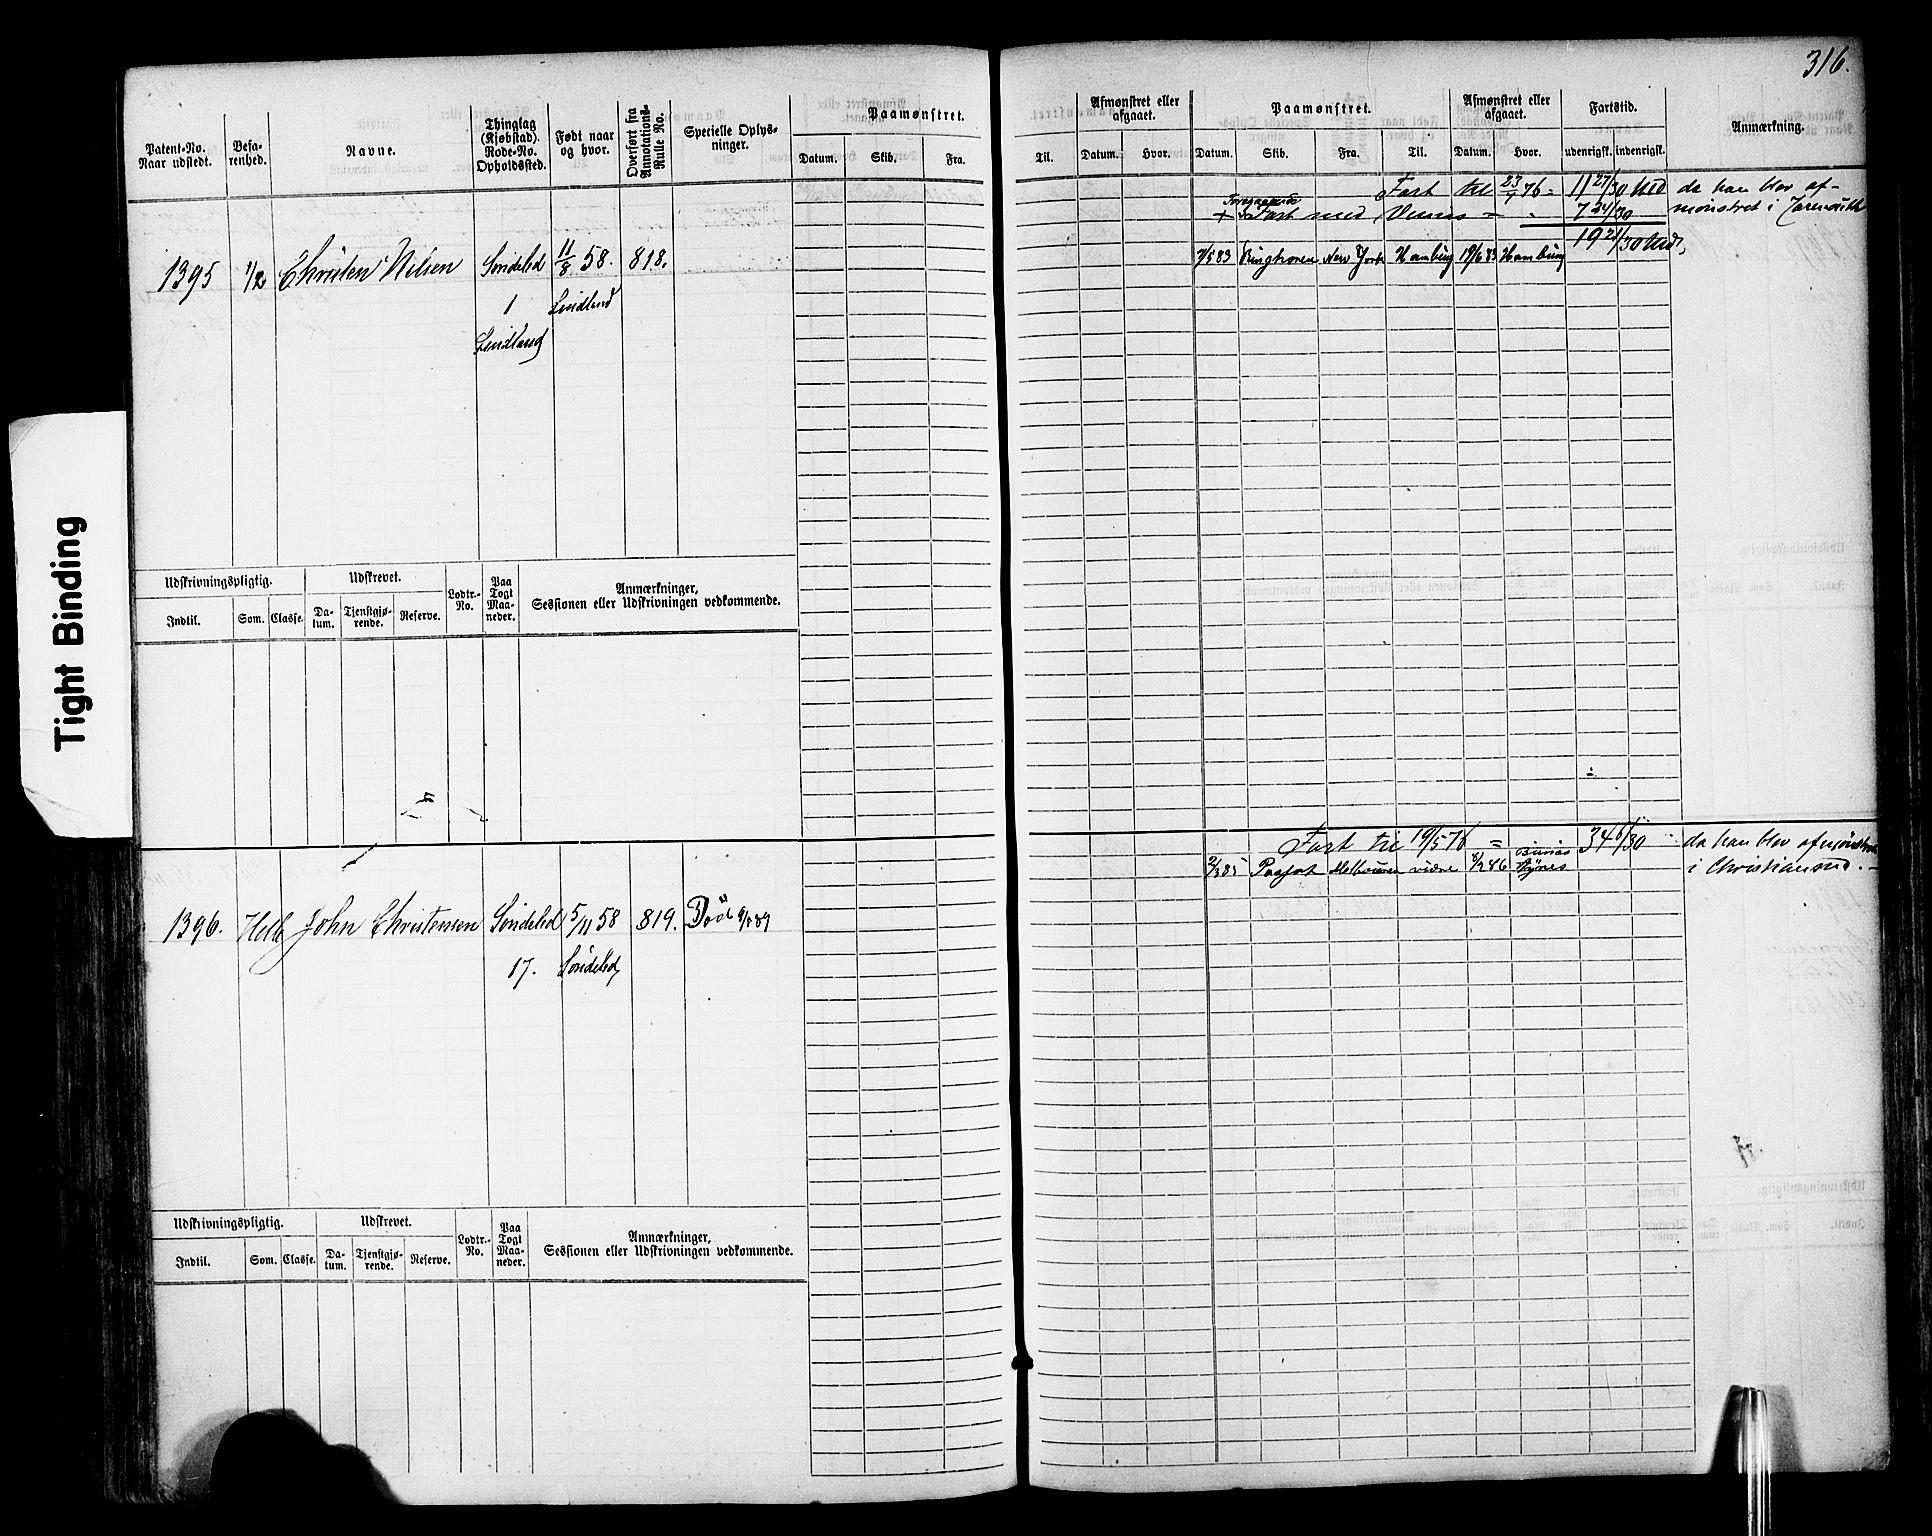 316.
Tight Binding
Patent-No. Naar udstedt.
Befarenhed.
Navne.
Thinglag (Kjøbstad). Rode-No. Opholdssted.
Født naar og hvor.
Overført fra Annotations-Rulle No.
Specielle Oplysninger.
Paamønstret.
Datum. Skib. Fra.
Til.
Afmønstret eller afgaaet.
Datum. Hvor.
Paamønstret.
Datum. Skib. Fra. Til.
Afmønstret eller afgaaet.
Datum. Hvor.
Fartstid.
udenrigsk. indenrigsk.
Anmærkning.
Fart til 23/7 76 = 11 27/30 Md da han blev af-
+ Fart med Venus = 7 24/30 mønstret i
19 21/30 Md,
1395 1/2 Christen Nilsen Søndeled 11/8 58. 818.
7/5 83 Ringhornen New York Hamburg 19/6 83 Hamburg
1 Lindland
Lindland
Udskrivningspligtig. Udskrevet. Lodtr.-No. Paa Togt Maaneder. Anmærkninger, Sessionen eller Udskrivningen vedkommende.
Indtil. Som. Classe. Datum. Tjenstgjørende. Reserve.
Fart til 19/5 78 = 34 6/30 da han blev afmønstret
i Christiansand.
2/3 85 Melbourne vidre 8/2 86 Buenos Ayres
1396. Helb John Christensen Søndeled 5/11 58 819. Død 9/5 89
17. Søndeled
Udskrivningspligtig. Udskrevet. Lodtr.-No. Paa Togt Maaneder. Anmærkninger, Sessionen eller Udskrivningen vedkommende.
Indtil. Som. Classe. Datum. Tjenstgjørende. Reserve.